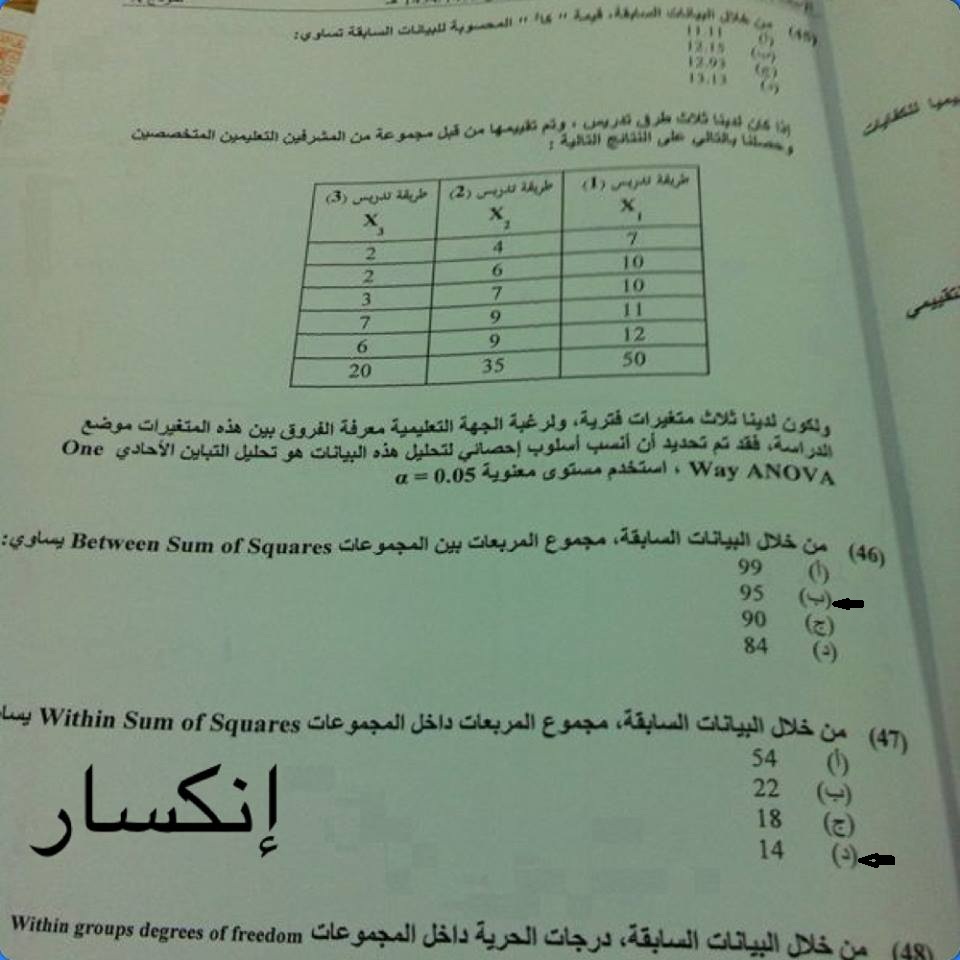 (45) من خلال البيانات السابقة، قيمة " كا² " المحسوبة للبيانات السابقة تساوي:
(أ) 11.11
(ب) 12.15
(ج) 12.93
(د) 13.13
إذا كان لدينا ثلاث طرق تدريس ، وتم تقييمها من قبل مجموعة من المشرفين التعليمين المتخصصين
وحصلنا بالتالي على النتائج التالية :
طريقة تدريس (1) طريقة تدريس (2) طريقة تدريس (3)
X1 X2 X3
7 4 2
10 6 2
10 7 3
11 9 7
12 9 6
50 35 20
ولكون لدينا ثلاث متغيرات فترية، ولرغبة الجهة التعليمية معرفة الفروق بين هذه المتغيرات موضع
الدراسة، فقد تم تحديد أن أنسب أسلوب إحصائي لتحليل هذه البيانات هو تحليل التباين الأحادي One
Way ANOVA ، استخدم مستوى معنوية α = 0.05
(46) من خلال البيانات السابقة، مجموع المربعات بين المجموعات Between Sum of Squares يساوي:
(أ) 99
(ب) 95
(ج) 90
(د) 84
(47) من خلال البيانات السابقة، مجموع المربعات داخل المجموعات Within Sum of Squares
(أ) 54
(ب) 22
(ج) 18
(د) 14
إنكسار
(48) من خلال البيانات السابقة، درجات الحرية داخل المجموعات Within groups degrees of freedom